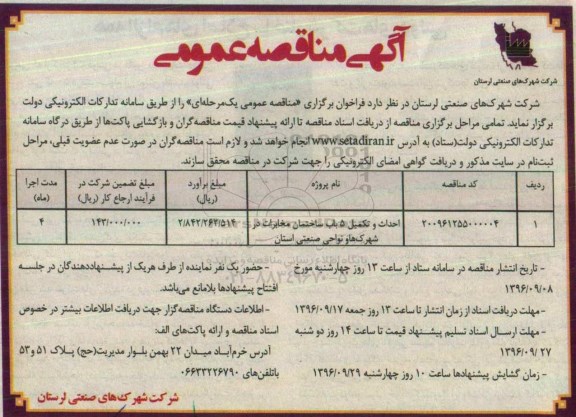 آگهی مناقصه عمومی
شرکت شهرک‌های صنعتی لرستان
شرکت شهرک‌های صنعتی لرستان در نظر دارد فراخوان برگزاری «مناقصه عمومی یک‌مرحله‌ای» را از طریق سامانه تدارکات الکترونیکی دولت
برگزار نماید. تمامی مراحل برگزاری مناقصه از دریافت اسناد مناقصه تا ارائه پیشنهاد قیمت مناقصه‌گران و بازگشایی پاکت‌ها از طریق درگاه سامانه
تدارکات الکترونیکی دولت(ستاد) به آدرس www.setadiran.ir انجام خواهد شد و لازم است مناقصه‌گران در صورت عدم عضویت قبلی، مراحل
ثبت‌نام در سایت مذکور و دریافت گواهی امضای الکترونیکی را جهت شرکت در مناقصه محقق سازند.
ردیف کد مناقصه نام پروژه مبلغ برآورد (ریال) مبلغ تضمین شرکت در فرآیند ارجاع کار (ریال) مدت اجرا (ماه)
۱ ۲۰۰۹۶۱۲۵۵۰۰۰۰۰۴ احداث و تکمیل ۵ باب ساختمان مخابرات در شهرک‌ها و نواحی صنعتی استان ۲/۸۴۲/۲۶۳/۵۱۴ ۱۴۳/۰۰۰/۰۰۰ ۴
- تاریخ انتشار مناقصه در سامانه ستاد از ساعت ۱۳ روز چهارشنبه مورخ
۱۳۹۶/۰۹/۰۸
- مهلت دریافت اسناد از زمان انتشار تا ساعت ۱۳ روز جمعه ۱۳۹۶/۰۹/۱۷
- مهلت ارسال اسناد تسلیم پیشنهاد قیمت تا ساعت ۱۴ روز دو شنبه
۱۳۹۶/۰۹/۲۷
- زمان گشایش پیشنهادها ساعت ۱۰ روز چهارشنبه ۱۳۹۶/۰۹/۲۹
- حضور یک نفر نماینده از طرف هریک از پیشنهاددهندگان در جلسه
افتتاح پیشنهادها بلامانع می‌باشد.
- اطلاعات دستگاه مناقصه‌گزار جهت دریافت اطلاعات بیشتر در خصوص
اسناد مناقصه و ارائه پاکت‌های الف:
آدرس خرم‌آباد میدان ۲۲ بهمن بلوار مدیریت(حج) پلاک ۵۱ و ۵۳
باتلفن‌های ۰۶۶۳۳۲۲۶۷۹۰
شرکت شهرک‌های صنعتی لرستان